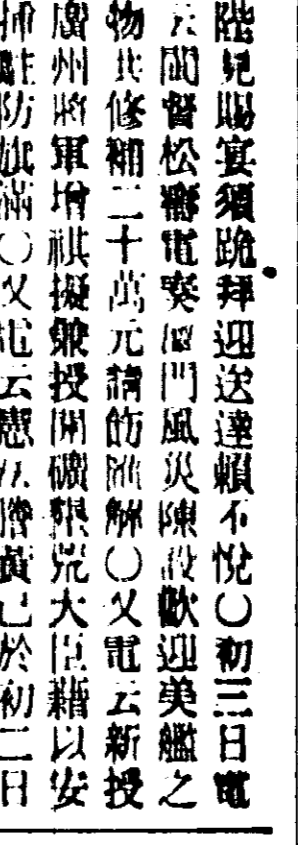 陛見賜宴須跪拜迎送達賴不悅〇初三日電
云閩督松壽電奏厦門風災陳設歡迎美艦之
物共修補二十萬元請飭滙解〇又電云新授
廣州將軍增祺擬兼授開礦墾荒大臣藉以安
插駐防旗滿〇又電云 已於初二日